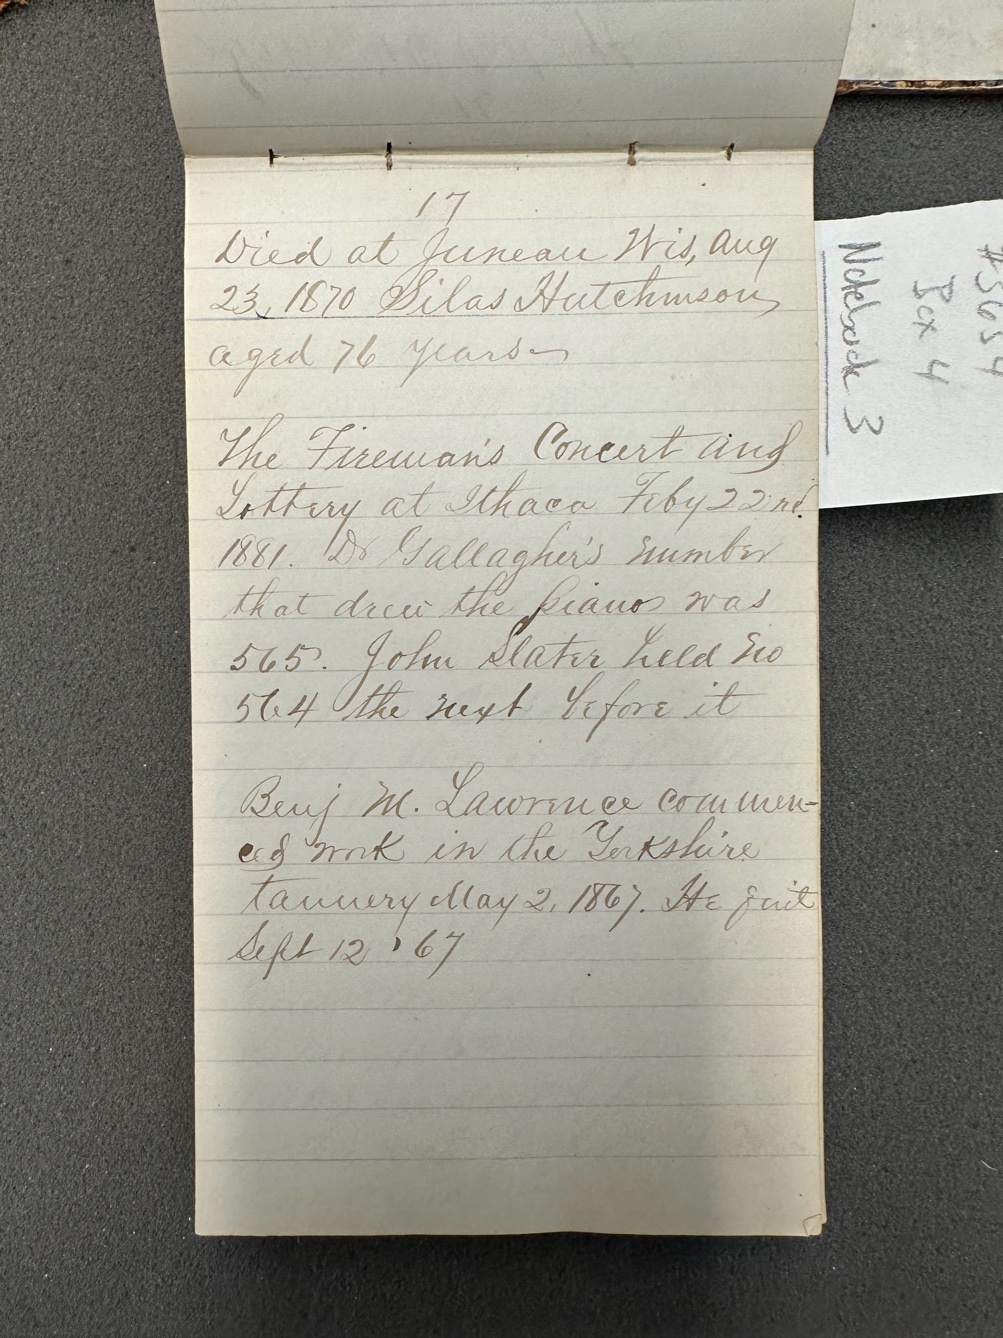 17
Died at Juneau Wis, Aug
23, 1870 Silas Hutchinson,
aged 76 years
The Fireman's Concert and
Lottery at Ithaca Feby 22nd
1881. Dr Gallagher's number
that drew the piano was
565. John Slater held No
564 the next before it
Benj M. Lawrence commen-
ced work in the Yorkshire
tannery May 2, 1867. He quit
Sept 12 '67
#3634
Box 4
Notebook 3